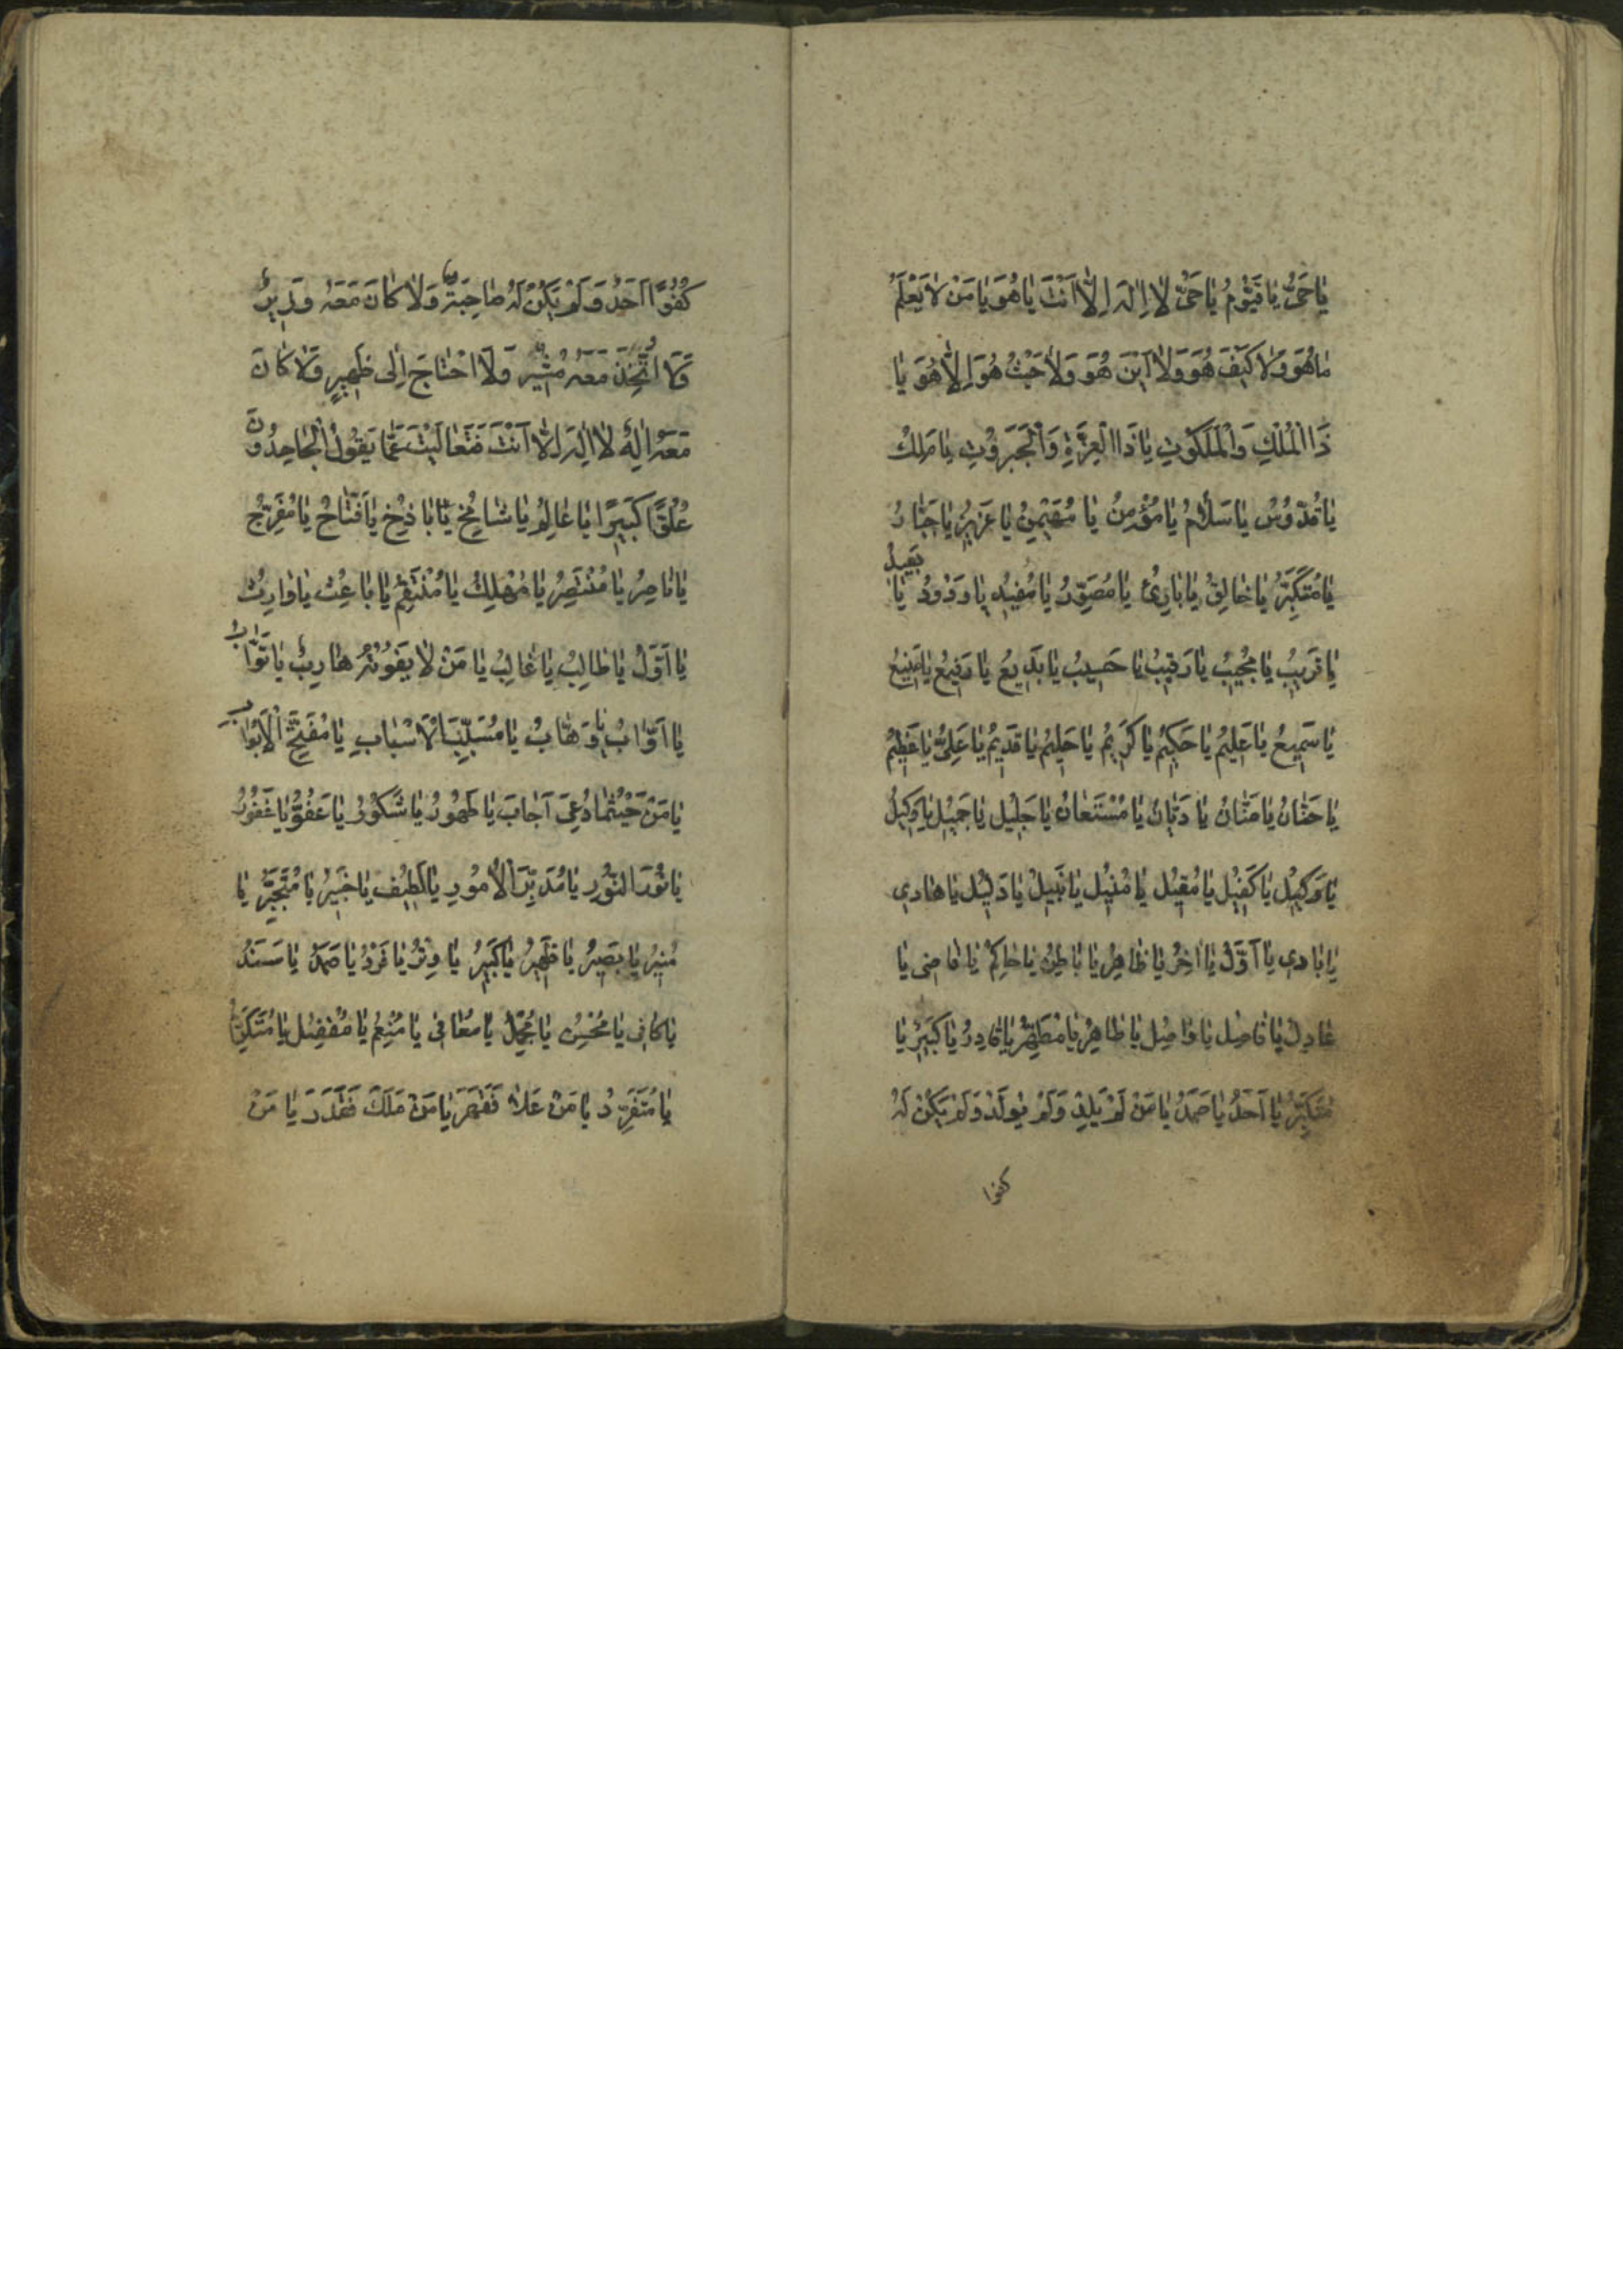 يَا حَيُّ يَا قَيُّومُ يَا حَيُّ لَا اِلٰهَ اِلَّا اَنْتَ يَا هُوَ يَا مَنْ لَا يَعْلَمُ
مَا هُوَ وَلَا كَيْفَ هُوَ وَلَا اَيْنَ هُوَ وَلَا حَيْثُ هُوَ اِلَّا هُوَ يَا
ذَا الْمُلْكِ وَالْمَلَكُوْتِ يَا ذَا الْعِزَّةِ وَالْجَبَرُوْتِ يَا مَلِكُ
يَا قُدُّوسُ يَا سَلَامُ يَا مُؤْمِنُ يَا مُهَيْمِنُ يَا عَزِيزُ يَا جَبَّارُ
يَا مُتَكَبِّرُ يَا خَالِقُ يَا بَارِئُ يَا مُصَوِّرُ يَا مُفِيْدُ يَا وَدُوْدُ يَا بَعِيدُ
يَا قَرِيبُ يَا مُجِيْبُ يَا رَقِيْبُ يَا حَسِيبُ يَا بَدِيعُ يَا رَفِيْعُ يَا مَنِيعُ
يَا سَمِيعُ يَا عَلِيمُ يَا حَكِيمُ يَا كَرِيمُ يَا حَلِيمُ يَا قَدِيمُ يَا عَلِيُّ يَا عَظِيْمُ
يَا حَنَّانُ يَا مَنَّانُ يَا دَيَّانُ يَا مُسْتَعَانُ يَا جَلِيْلُ يَا جَمِيْلُ يَا وَكِيلُ
يَا وَكِيْلُ يَا كَفِيْلُ يَا مُقِيْلُ يَا مُنِيْلُ يَا نَبِيلُ يَا دَلِيْلُ يَا هَادِي
يَا بَادِي يَا اَوَّلُ يَا اٰخِرُ يَا ظَاهِرُ يَا بَاطِنُ يَا حَاكِمُ يَا قَاضِي يَا
عَادِلُ يَا فَاضِلُ يَا وَاصِلُ يَا طَاهِرُ يَا مُطَهِّرُ يَا قَادِرُ يَا كَبِيْرُ يَا
مُتَكَبِّرُ يَا اَحَدُ يَا صَمَدُ يَا مَنْ لَمْ يَلِدْ وَلَمْ يُولَدْ وَلَمْ يَكُنْ لَهُ
كفوا
كُفُوًا اَحَدٌ وَلَمْ يَكُنْ لَهُ صَاحِبَةٌ وَلَا كَانَ مَعَهُ وَزِيرٌ
وَلَا اتَّخَذَ مَعَهُ مُشِيْرًا وَلَا احْتَاجَ اِلٰى ظَهِيرٍ وَلَا كَانَ
مَعَهُ اِلٰهٌ لَا اِلٰهَ اِلَّا اَنْتَ فَتَعَالَيْتَ عَمَّا يَقُوْلُ الْجَاحِدُونَ
عُلُوًّا كَبِيرًا يَا عَالِمُ يَا شَامِخُ يَا بَاذِخُ يَا فَتَّاحُ يَا مُفَرِّجُ
يَا نَاصِرُ يَا مُنْتَصِرُ يَا مُهْلِكُ يَا مُنْتَقِمُ يَا بَاعِثُ يَا وَارِثُ
يَا اَوَّلُ يَا طَالِبُ يَا غَالِبُ يَا مَنْ لَا يَفُوْتُهُ هَارِبٌ يَا تَوَّابُ
يَا اَوَّابُ يَا وَهَّابُ يَا مُسَبِّبَ الْاَسْبَابِ يَا مُفَتِّحَ الْاَبْوَابِ
يَا مَنْ حَيْثُمَا دُعِيَ اَجَابَ يَا طَهُورُ يَا شَكُوْرُ يَا عَفُوُّ يَا غَفُوْرُ
يَا نُوْرَ النُّوْرِ يَا مُدَبِّرَ الْاُمُوْرِ يَا لَطِيْفُ يَا خَبِيْرُ يَا مُتَجَبِّرُ يَا
مُنِيْرُ يَا بَصِيْرُ يَا ظَهِيْرُ يَا كَبِيْرُ يَا وِتْرُ يَا فَرْدُ يَا صَمَدُ يَا سَنَدُ
يَا كَافِي يَا مُحْسِنُ يَا مُجْمِلُ يَا مُعَافِي يَا مُنْعِمُ يَا مُفْضِلُ يَا مُتَكَرِّمُ
يَا مُتَفَرِّدُ يَا مَنْ عَلَا فَقَهَرَ يَا مَنْ مَلَكَ فَقَدَرَ يَا مَنْ